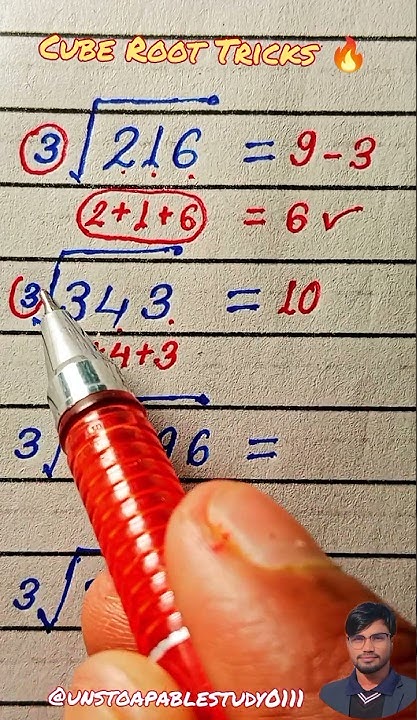 CUBE ROOT TRICKS 🔥
3√216 = 9-3
2+1+6 = 6 ✓
3√343 = 10
4+3
96 =
3√
@UNSTOAPABLESTUDY0111